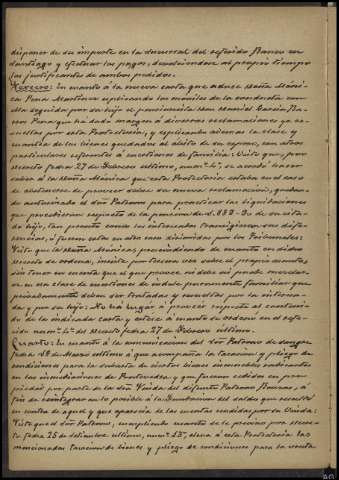 disponer de su importe en la Sucursal del referido Banco en
Santiago y efectuar los pagos, devolviéndose al propio tiempo
los justificantes de ambos pedidos.
Tercero: En cuanto á la nueva carta que aduce Doña Mónica
explicando los móviles de la conducta
seguida por su hijo el pensionista Don Manuel García
que ha dado margen á diversas reclamaciones ya re-
sueltas por esta Protectoría, y explicando además la clase y
cuantía de los bienes quedados al óbito de su esposo, con otros
particulares referentes á cuestiones de familia: Visto que por
decreto fecha 27 de Febrero último, num.º 4º, se acordó hacer
saber á la Doña Mónica que esta Protectoría estaba en el caso
de abstenerse de proveer sobre su nueva reclamación, quedan-
do autorizado el Sor Patrono para practicar las liquidaciones
que procedieran respecto de la pensión de
hijo, tan pronto como los interesados transigieran sus dife-
rencias, ó fueran estas antes dirimidas por los Tribunales:
Visto que la Doña Mónica, prescindiendo de cuanto en dicho
decreto se ordena, insiste por tercera vez sobre el propio asunto,
sin tener en cuenta que el que provee ni debe ni puede mezclar-
se en esa clase de cuestiones de indole puramente familiar que
privadamente deben ser tratadas y resueltas por la interesa-
da y por su hijo; No há lugar á proveer respecto al contenido
de la indicada carta y estése á cuanto se ordenó en el refe-
rido num.º 4º del decreto fecha 27 de Febrero último.
Cuarto: En cuanto á la comunicación del Sor Patrono de Sangre
fecha 18 de Marzo último á que acompaña la tasación y pliego de
condiciones para la subasta de ciertos bienes inmuebles radicantes
en las inmediaciones de Pontevedra y que fueron cedidos en pro-
piedad por parte de la Sra Viuda del difunto Patrono á
fin de reintegrar en lo posible á la Fundación del saldo que resultó
en contra de aquel y que aparecía de las cuentas rendidas por su Viuda:
Visto que el Sor Patrono, cumpliendo cuanto se le previno por decre-
to fecha 25 de Setiembre último, num.º 13º, eleva á esta Protectoría las
mencionadas tasaciones de bienes y pliego de condiciones para la venta